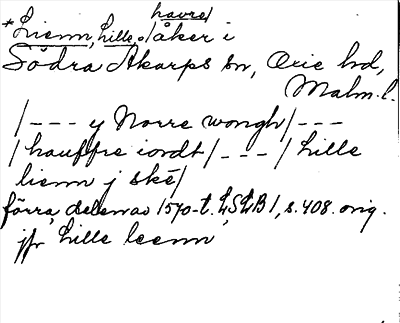 havre/
*Lienn, lille, o/åker i
Södra Åkarps sn, Oxie hd,
Malm.l.
/--- y Norre wongh/---
/hauffre iordt/---/lille
lienn j ské/
förra delen av 1570-t. LSLB 1, s. 408. orig.
jfr lille leenn